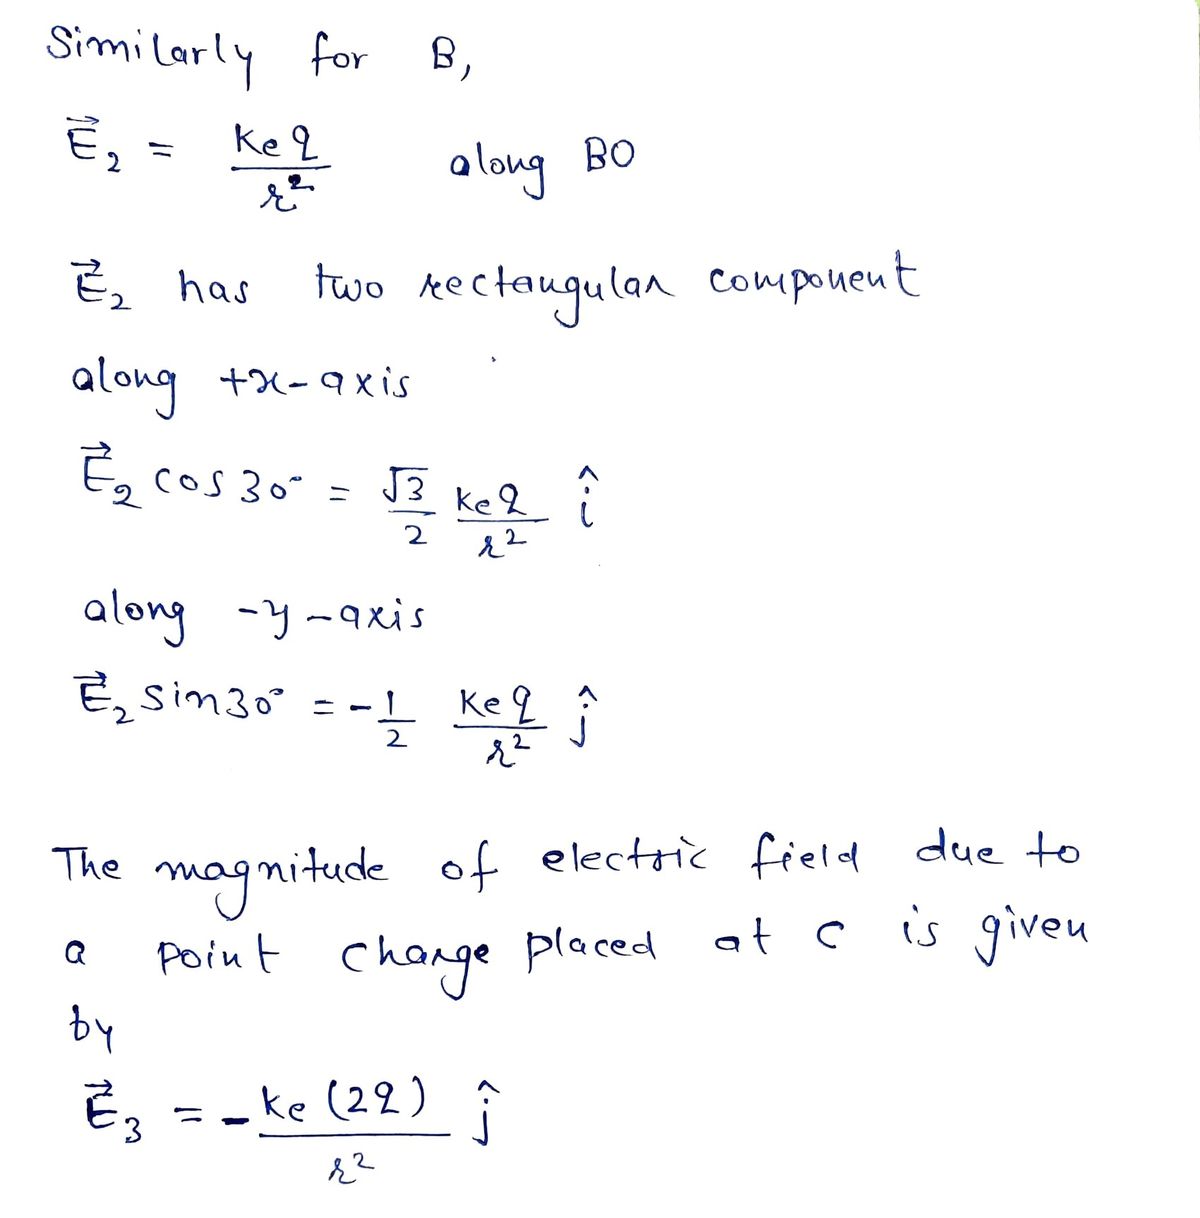 Similarly for B,
E⃗₂ = ke q / r² along BO
E⃗₂ has two rectangular component
along +x-axis
E⃗₂ cos 30° = √3/2 ke q / r² î
along -y-axis
E⃗₂ sin 30° = -1/2 ke q / r² ĵ
The magnitude of electric field due to
a point charge placed at C is given
by
E⃗₃ = - ke (2q) / r² ĵ